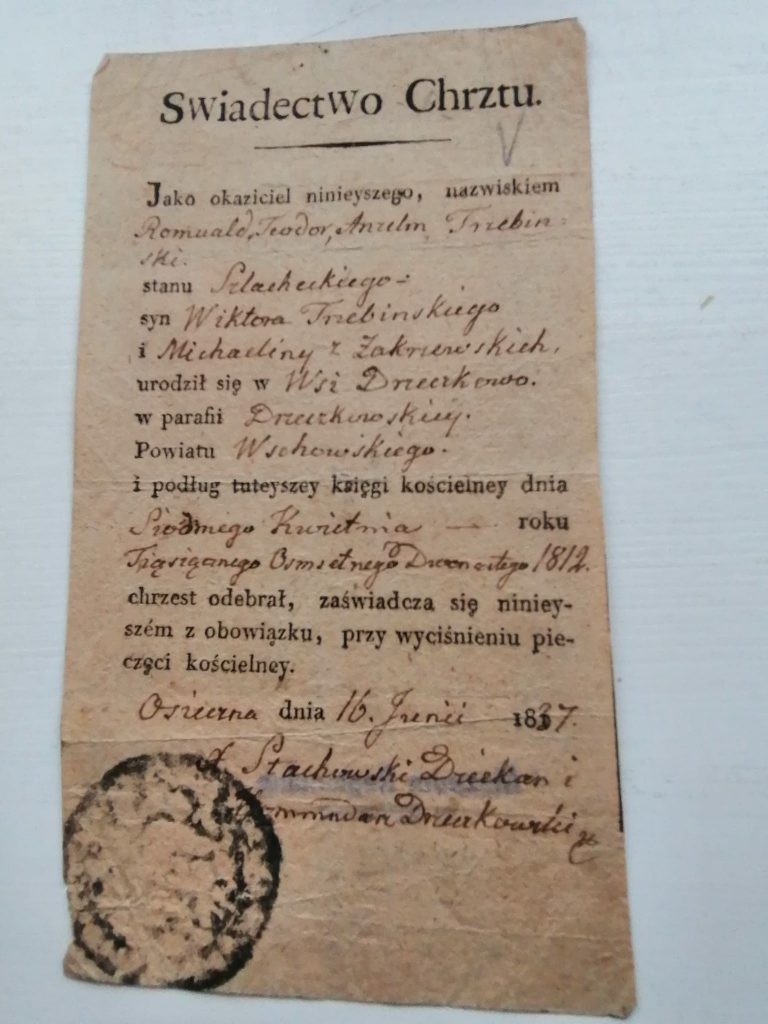 Swiadectwo Chrztu.
Jako okaziciel ninieyszego, nazwiskiem
Romuald, Teodor, Anzelm, Trzebin-
ski.
stanu Szlacheckiego-
syn Wiktora Trzebinskiego
i Michaeliny z Zakrzewskich,
urodził się w Wsi Drzeczkowo.
w parafii Drzeczkowskiey.
Powiatu Wschowskiego.
i podług tuteyszey księgi kościelney dnia
Siodmego Kwietnia — roku
Tysiącznego Osmsetnego Dwonastego 1812.
chrzest odebrał, zaświadcza się niniey-
szém z obowiązku, przy wyciśnieniu pie-
częci kościelney.
Osieczna dnia 16. Junii 1837.
A Stachowski Dziekan i
Kommendarz Drzeczkowski